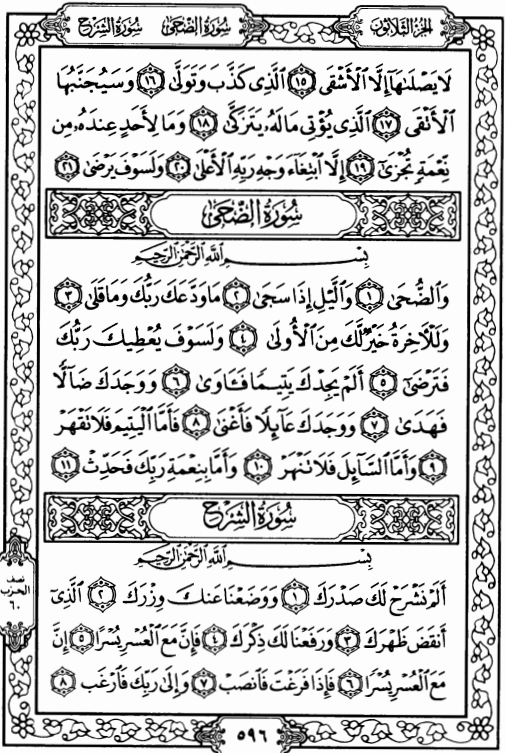 الجزء الثلاثون
سورة الضحى سورة الشرح
لَا يَصْلَىٰهَآ إِلَّا ٱلْأَشْقَى ١٥ ٱلَّذِى كَذَّبَ وَتَوَلَّىٰ ١٦ وَسَيُجَنَّبُهَا
ٱلْأَتْقَى ١٧ ٱلَّذِى يُؤْتِى مَالَهُۥ يَتَزَكَّىٰ ١٨ وَمَا لِأَحَدٍ عِندَهُۥ مِن
نِّعْمَةٍ تُجْزَىٰٓ ١٩ إِلَّا ٱبْتِغَآءَ وَجْهِ رَبِّهِ ٱلْأَعْلَىٰ ٢٠ وَلَسَوْفَ يَرْضَىٰ ٢١
سُورَةُ الضُّحَى
بِسْمِ اللَّهِ الرَّحْمَٰنِ الرَّحِيمِ
وَٱلضُّحَىٰ ١ وَٱلَّيْلِ إِذَا سَجَىٰ ٢ مَا وَدَّعَكَ رَبُّكَ وَمَا قَلَىٰ ٣
وَلَلْأَخِرَةُ خَيْرٌ لَّكَ مِنَ ٱلْأُولَىٰ ٤ وَلَسَوْفَ يُعْطِيكَ رَبُّكَ
فَتَرْضَىٰٓ ٥ أَلَمْ يَجِدْكَ يَتِيمًا فَـَٔاوَىٰ ٦ وَوَجَدَكَ ضَآلًّا
فَهَدَىٰ ٧ وَوَجَدَكَ عَآئِلًا فَأَغْنَىٰ ٨ فَأَمَّا ٱلْيَتِيمَ فَلَا تَقْهَرْ
٩ وَأَمَّا ٱلسَّآئِلَ فَلَا تَنْهَرْ ١٠ وَأَمَّا بِنِعْمَةِ رَبِّكَ فَحَدِّثْ ١١
سُورَةُ الشَّرْحِ
بِسْمِ اللَّهِ الرَّحْمَٰنِ الرَّحِيمِ
أَلَمْ نَشْرَحْ لَكَ صَدْرَكَ ١ وَوَضَعْنَا عَنكَ وِزْرَكَ ٢ ٱلَّذِىٓ
أَنقَضَ ظَهْرَكَ ٣ وَرَفَعْنَا لَكَ ذِكْرَكَ ٤ فَإِنَّ مَعَ ٱلْعُسْرِ يُسْرًا ٥ إِنَّ
مَعَ ٱلْعُسْرِ يُسْرًا ٦ فَإِذَا فَرَغْتَ فَٱنصَبْ ٧ وَإِلَىٰ رَبِّكَ فَٱرْغَب ٨
نصف
الحزب
٦٠
٥٩٦